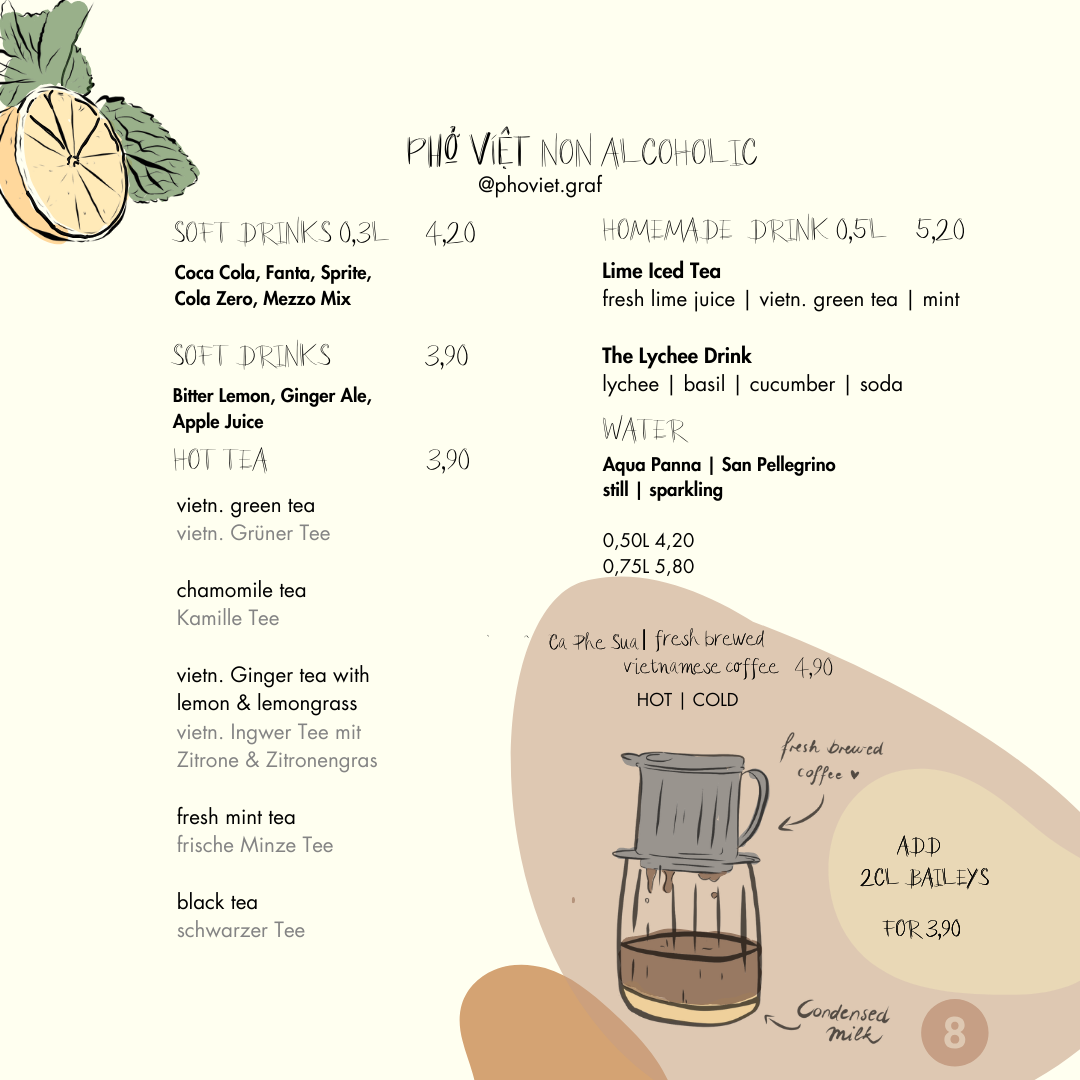 PHỞ VIỆT NON ALCOHOLIC
@phoviet.graf
SOFT DRINKS 0,3L 4,20
Coca Cola, Fanta, Sprite,
Cola Zero, Mezzo Mix
SOFT DRINKS 3,90
Bitter Lemon, Ginger Ale,
Apple Juice
HOT TEA 3,90
vietn. green tea
vietn. Grüner Tee
chamomile tea
Kamille Tee
vietn. Ginger tea with
lemon & lemongrass
vietn. Ingwer Tee mit
Zitrone & Zitronengras
fresh mint tea
frische Minze Tee
black tea
schwarzer Tee
HOMEMADE DRINK 0,5L 5,20
Lime Iced Tea
fresh lime juice | vietn. green tea | mint
The Lychee Drink
lychee | basil | cucumber | soda
WATER
Aqua Panna | San Pellegrino
still | sparkling
0,50L 4,20
0,75L 5,80
Ca Phe Sua| fresh brewed
vietnamese coffee 4,90
HOT | COLD
fresh brewed
coffee ♥
ADD
2CL BAILEYS
FOR 3,90
Condensed
Milk
8